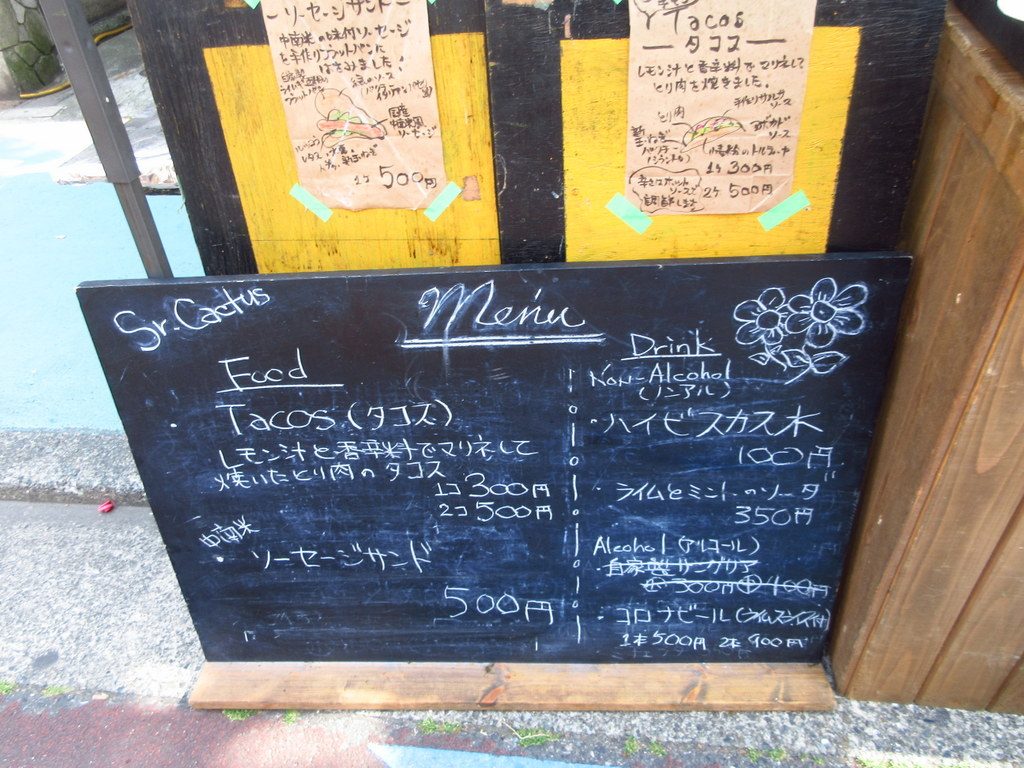 ソーセージサンド
中南米の味付ソーセージ
を手作りフラットパンに
はさみました!
国産
ソーセージ
レタス
1コ 500円
Tacos
タコス
レモン汁と香辛料でマリネして
とり肉を焼きました。
手作りサルサ
ソース
とり肉
アボカド
ソース
1コ 300円
2コ 500円
辛さはホット
ソースで
調節します
Sr. Cactus
Menu
Food
・Tacos (タコス)
レモン汁と香辛料でマリネして
焼いたとり肉のタコス
1コ 300円
2コ 500円
中南米
・ソーセージサンド
500円
Drink
Non-Alcohol
(ノンアル)
・ハイビスカス水
100円
・ライムとミントのソーダ
350円
Alcohol (アルコール)
・自家製サングリア
300円 100円
・コロナビール(ライムスライス付)
1本500円 2本900円